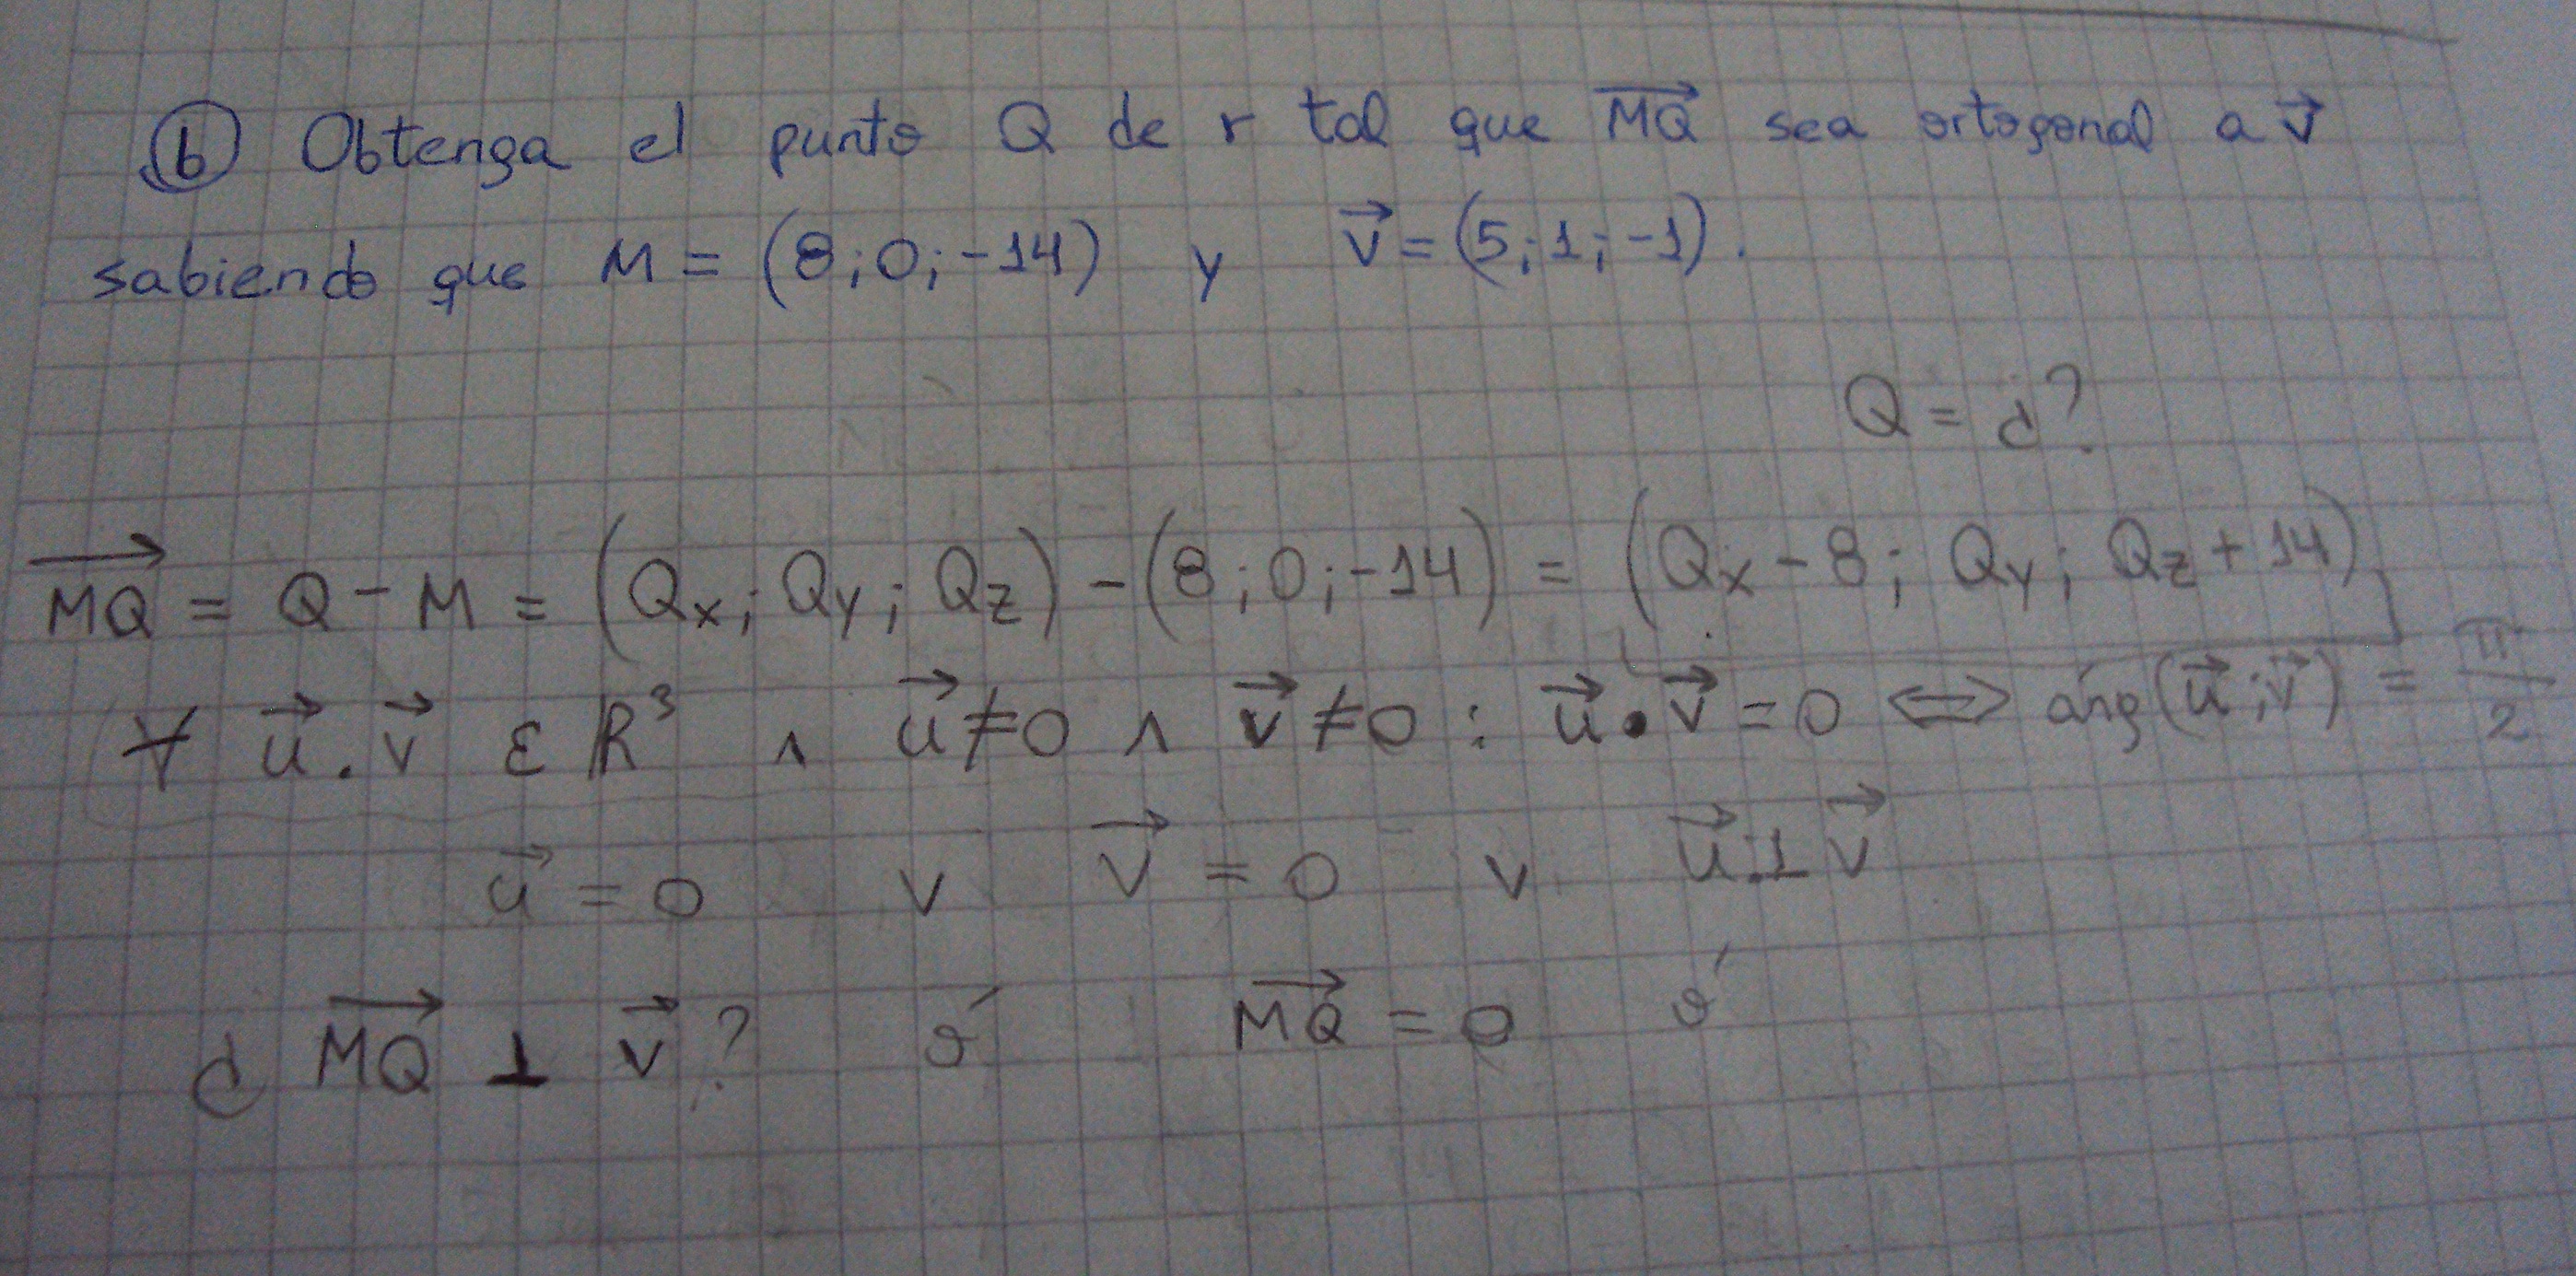 ⓑ Obtenga el punto Q de r tal que \overrightarrow{MQ} sea ortogonal a \vec{v}
sabiendo que M = (8; 0; -14) y \vec{v} = (5; 1; -1).
Q = ¿?
\overrightarrow{MQ} = Q - M = (Qx; Qy; Qz) - (8; 0; -14) = (Qx - 8; Qy; Qz + 14)
∀ \vec{u} . \vec{v} ε R³ ∧ \vec{u} ≠ 0 ∧ \vec{v} ≠ 0 : \vec{u} • \vec{v} = 0 ⟺ áng(\vec{u}; \vec{v}) = π/2
\vec{u} = 0 ∨ \vec{v} = 0 ∨ \vec{u} ⊥ \vec{v}
¿ \overrightarrow{MQ} ⊥ \vec{v} ? ó \overrightarrow{MQ} = 0 ó